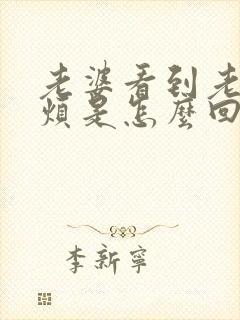 老婆看到老
煩是怎麼回
李新寧